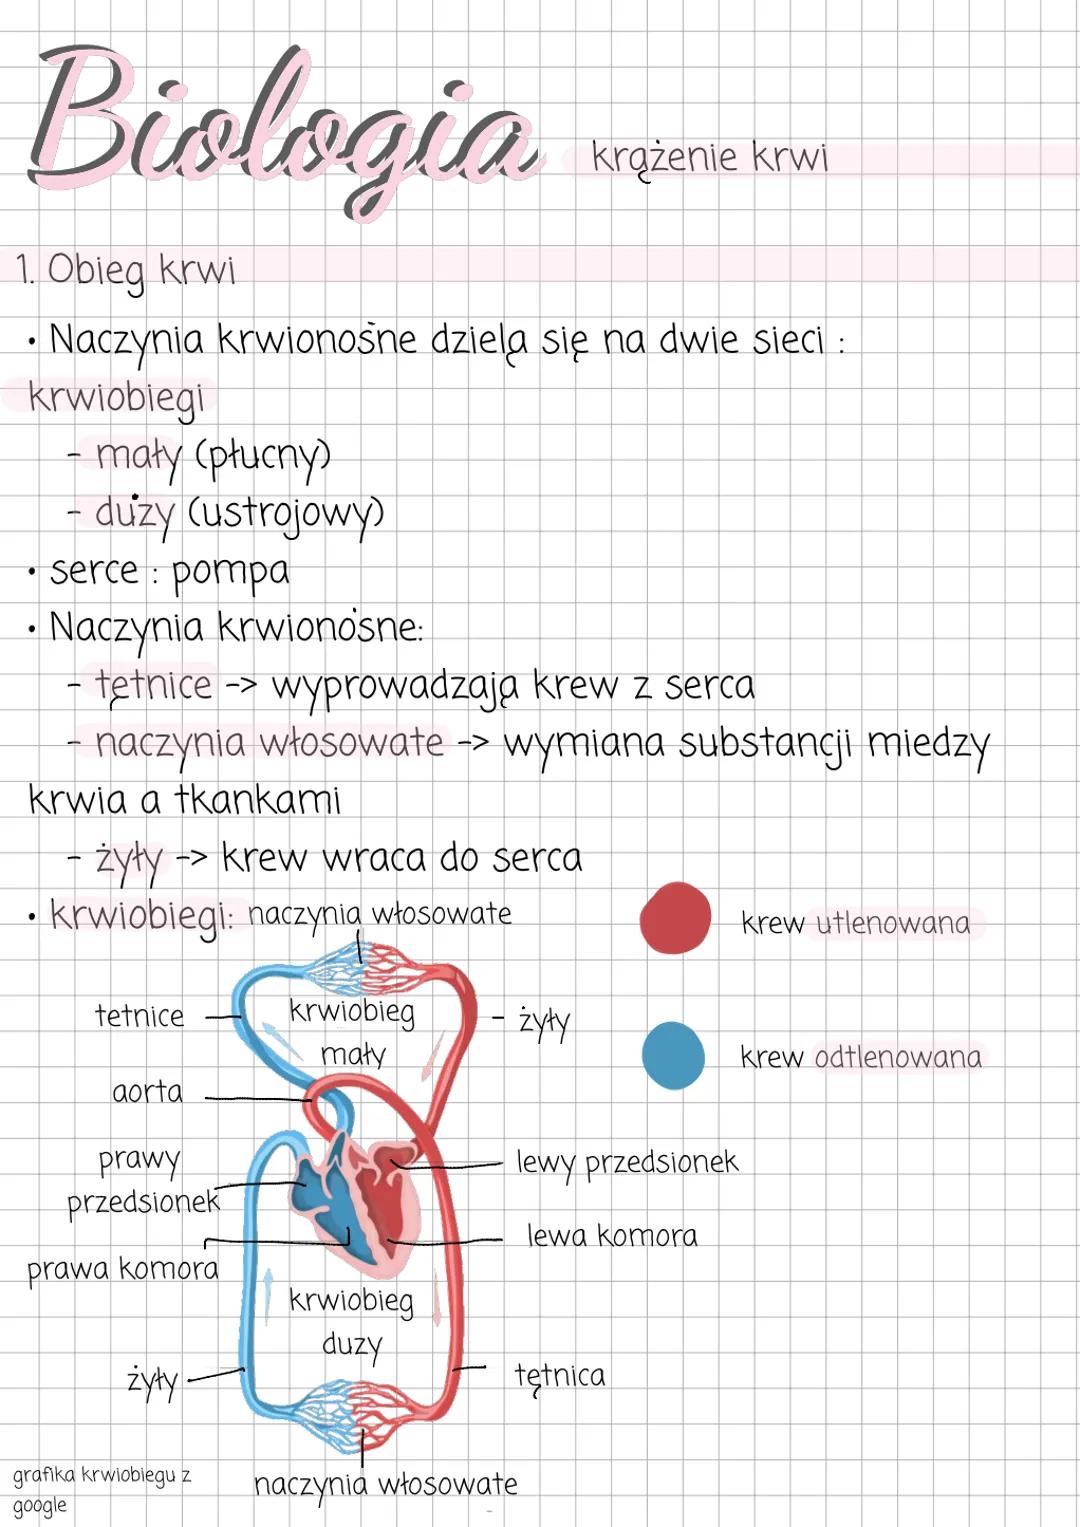 Biologia krążenie krwi
1. Obieg krwi
• Naczynia krwionośne dzielą się na dwie sieci :
krwiobiegi
- mały (płucny)
- duży (ustrojowy)
• serce : pompa
• Naczynia krwionośne:
- tętnice -> wyprowadzają krew z serca
- naczynia włosowate -> wymiana substancji miedzy
krwia a tkankami
- żyły -> krew wraca do serca
• krwiobiegi: naczynia włosowate
krew utlenowana
tetnice
krwiobieg
mały
- żyły
krew odtlenowana
aorta
prawy
przedsionek
lewy przedsionek
lewa komora
prawa komora
krwiobieg
duzy
żyły
tętnica
grafika krwiobiegu z
google
naczynia włosowate